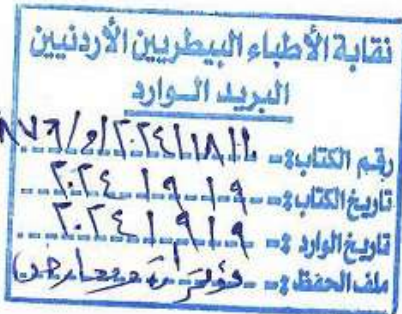 نقابة الأطباء البيطريين الأردنيين
البريد الوارد
رقم الكتاب :-
تاريخ الكتاب :- ٢٠٢٤/٩/٩
تاريخ الوارد :- ٢٠٢٤/٩/٩
ملف الحفظ :- مؤتمرات